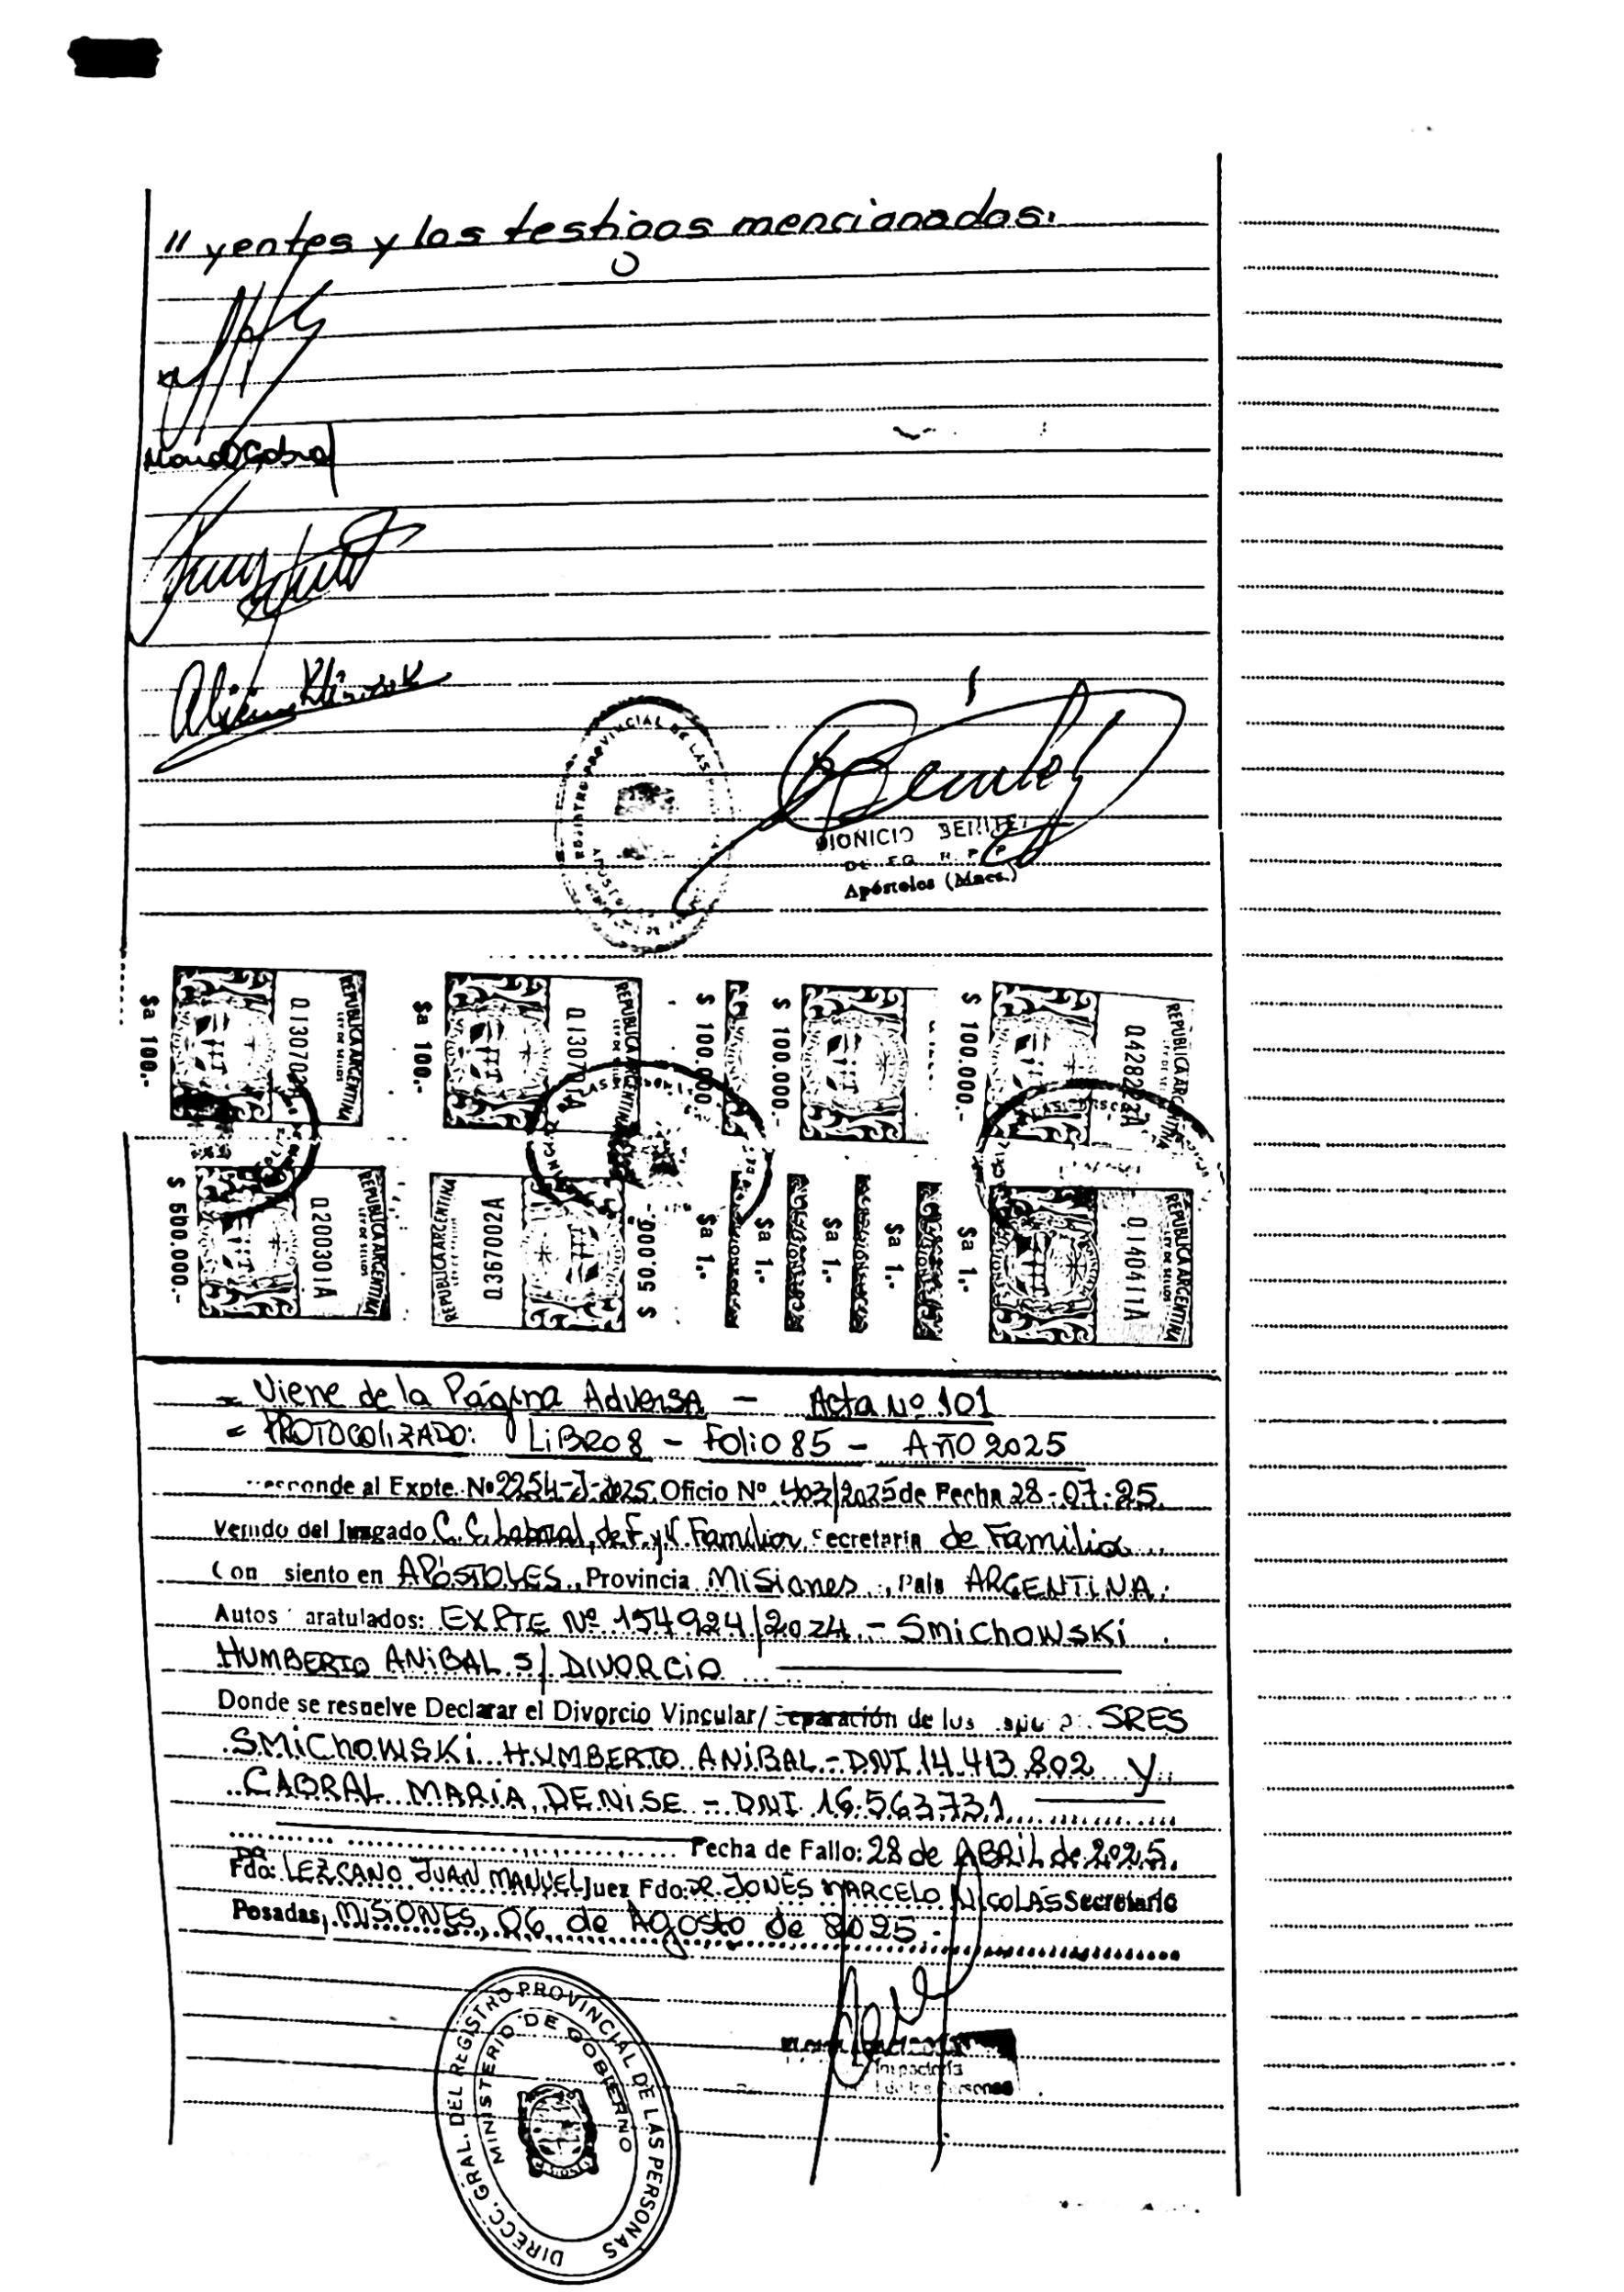 " yentes y los testigos mencionados.
Cabral
Alicia
REGISTRO PROVINCIAL DE LAS
DIONICIO BENITEZ
Apóstoles (Mnes.)
$a 100.-
REPUBLICA ARGENTINA
LEY DE SELLOS
$a 100.-
REPUBLICA ARGENTINA
$ 100.000.-
$ 100.000.-
$ 100.000.-
REPUBLICA ARGENTINA
$ 500.000.-
02003001A
REPUBLICA ARGENTINA
LEY DE SELLOS
REPUBLICA ARGENTINA
0367002A
$ 50.000.-
$a 1.-
$a 1.-
$a 1.-
$a 1.-
$a 1.-
0140411A
REPUBLICA ARGENTINA
LEY DE SELLOS
= Viene de la Página Adversa - Acta Nº 101
= PROTOCOLIZADO: LIBRO 8 - Folio 85 - AÑO 2025
esponde al Expte. Nº 2254-J-2025 Oficio Nº 403/2025 de Fecha 28-07-25
Venido del Juzgado C.C. Laboral, de F. y V. Familiar Secretaria de Familia
Con siento en APÓSTOLES, Provincia Misiones, País ARGENTINA.
Autos aratulados: EXPTE Nº 154924/2024 - Smichowski
HUMBERTO ANIBAL S/ DIVORCIO
Donde se resuelve Declarar el Divorcio Vincular/ Separación de los SRES
SMICHOWSKI HUMBERTO ANIBAL - DNI 14.413.802 y
CABRAL MARIA DENISE - DNI 16.563.731
Fecha de Fallo: 28 de ABRIL de 2025.
Fdo: DR LEZCANO JUAN MANUEL Juez Fdo: DR. JONES MARCELO NICOLAS Secretario
Posadas, MISIONES, 06 de Agosto de 2025.-
DIRECC. GRAL. DEL REGISTRO PROVINCIAL DE LAS PERSONAS
MINISTERIO DE GOBIERNO
Inspectoría
de las Personas